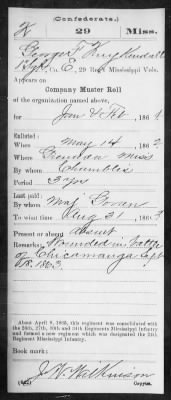 (Confederate.)
29 Miss.
George F. King Kendall
1 Sgt, Co. E, 29 Reg't Mississippi Vols.
Appears on
Company Muster Roll
of the organization named above,
for Jan & Feb, 1864.
Enlisted:
When May 14, 1862
Where Grenada Miss
By whom Chambliss
Period 3 yrs
Last paid:
By whom Maj Govan
To what time Aug 31, 1863
Present or absent Absent
Remarks: Wounded in battle
of Chicamauga Sept
1863
About April 9, 1865, this regiment was consolidated with
the 24th, 27th, 30th and 34th Regiments Mississippi Infantry
and formed a new regiment which was designated the 24th
Regiment Mississippi Infantry.
Book mark:
J. W. Wilkinson
Copyist.